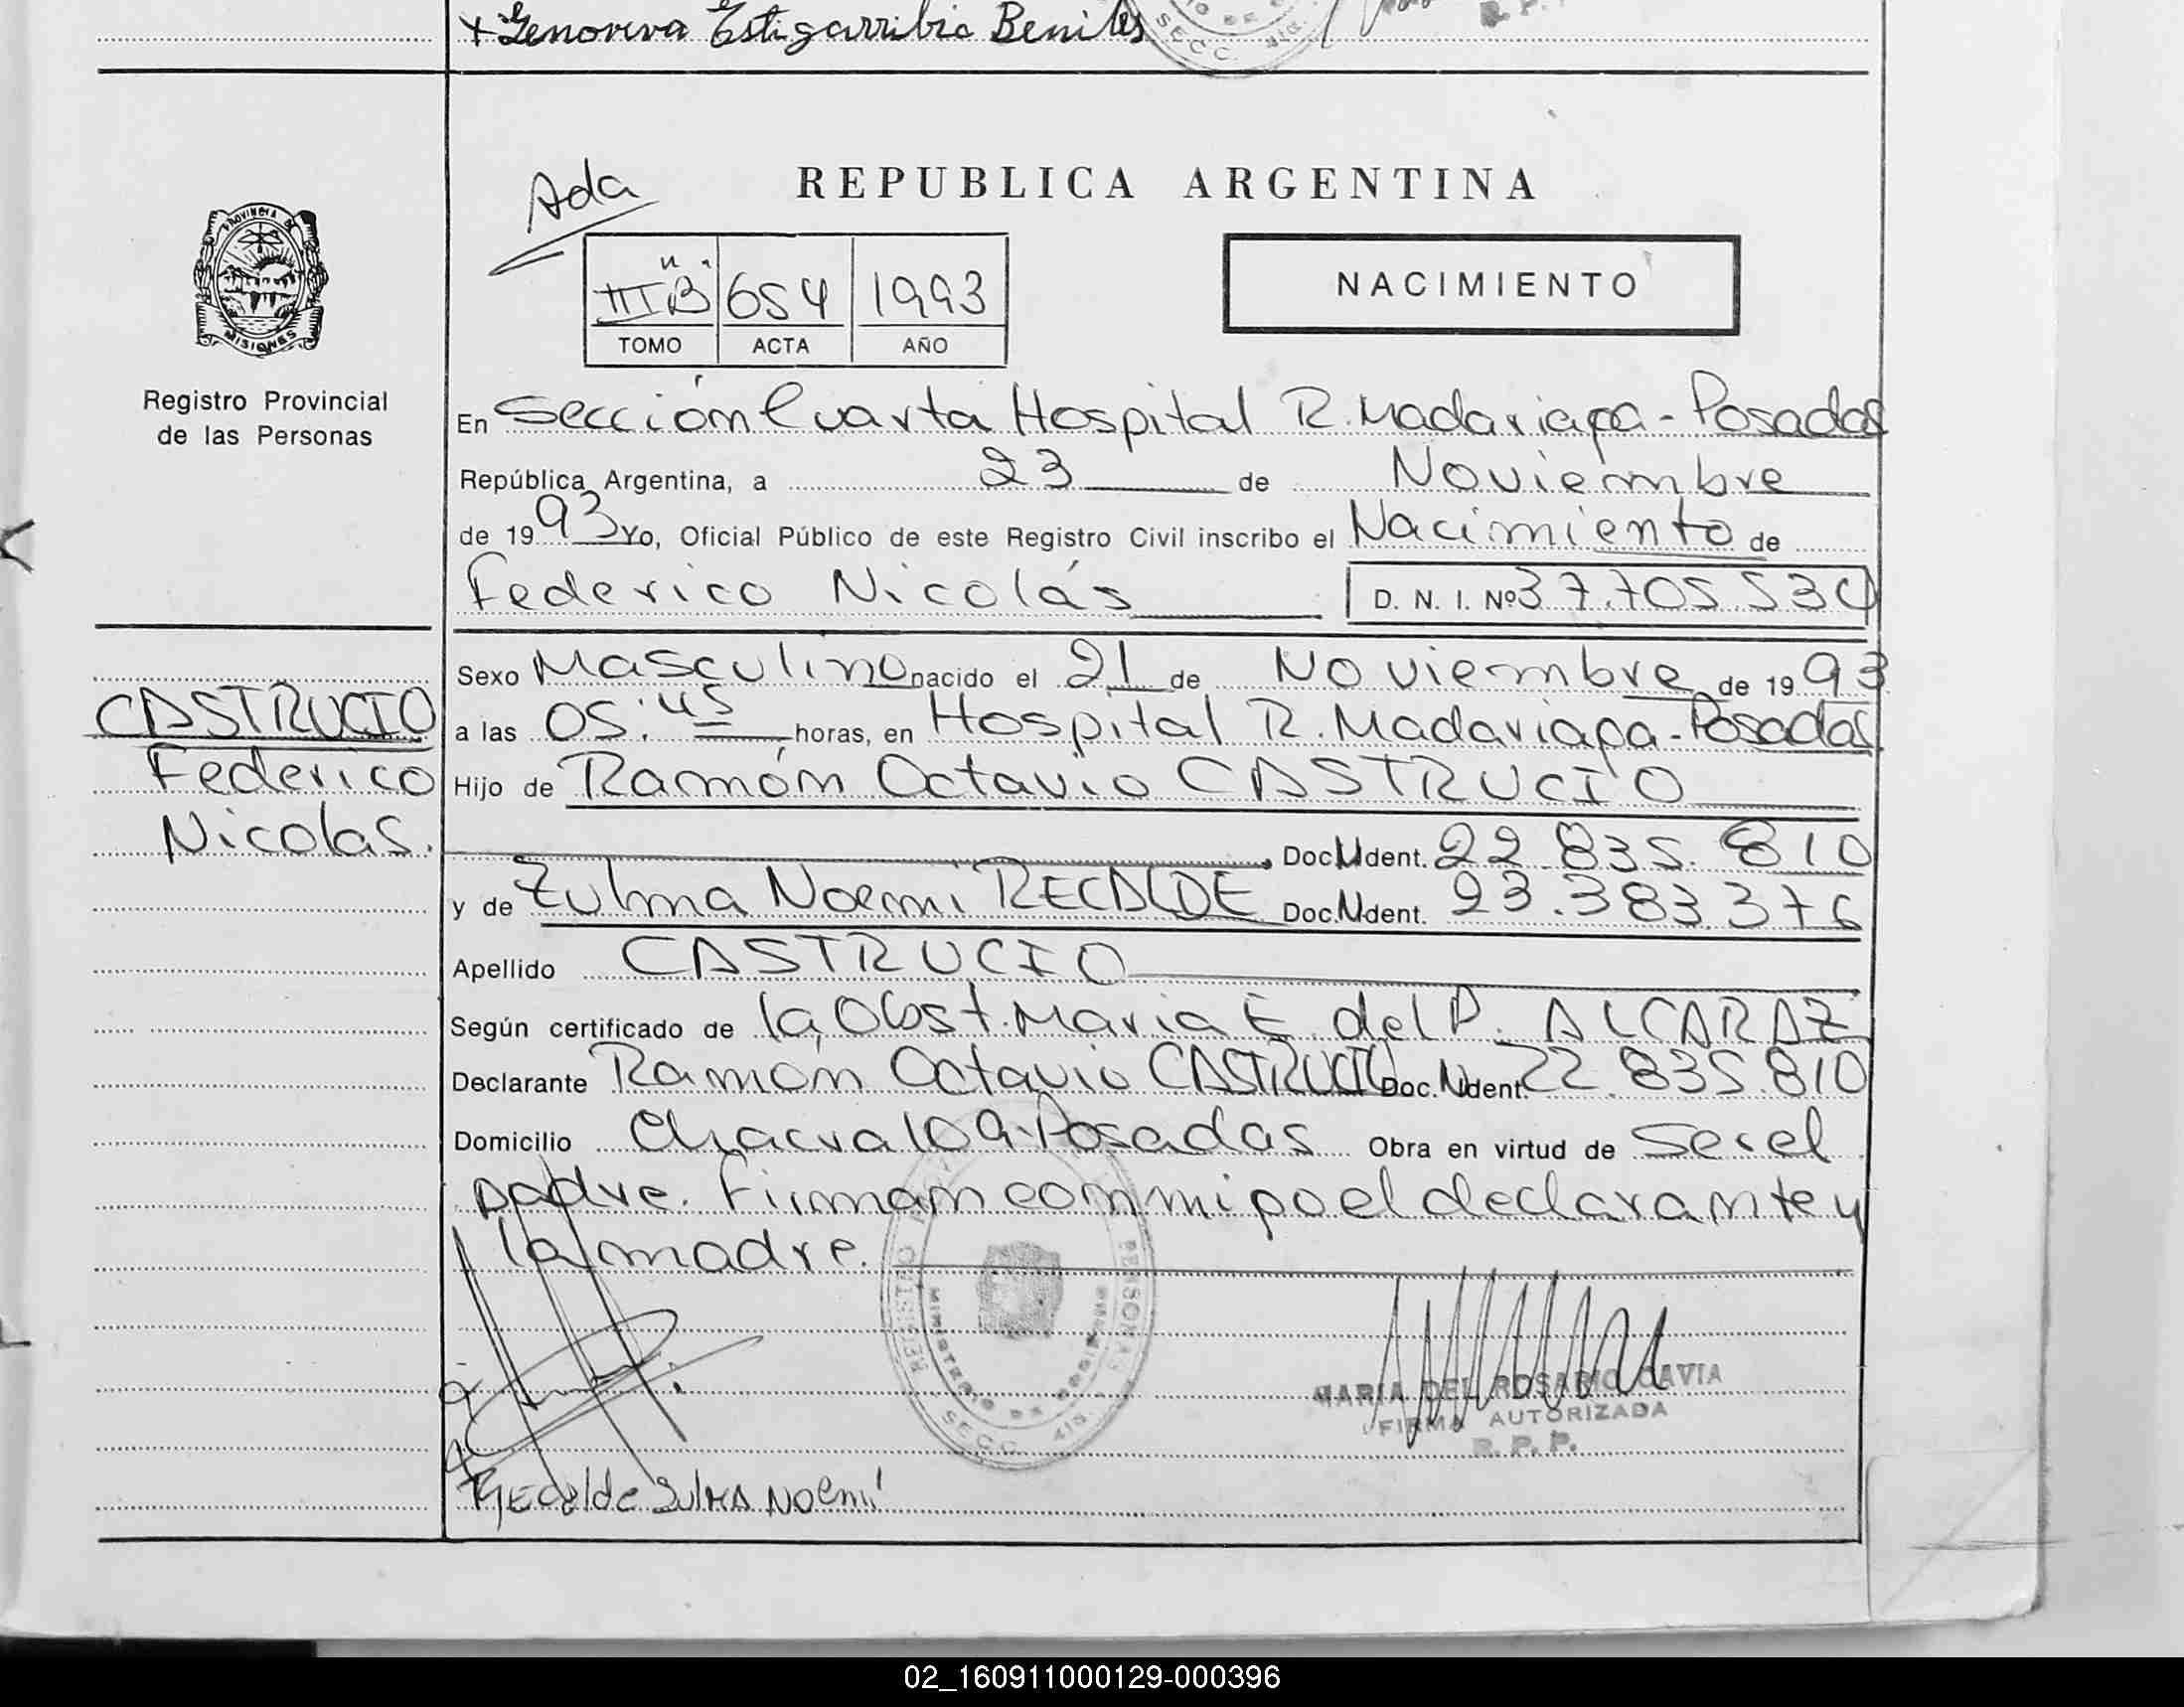 + Genoveva Estigarribia Benites
SECC. 4ta.
R. P. P.
Ada
REPUBLICA ARGENTINA
PROVINCIA DE
MISIONES
III "B"
654
1993
TOMO
ACTA
AÑO
NACIMIENTO
Registro Provincial
de las Personas
En Sección Cuarta Hospital R. Madariaga - Posadas
República Argentina, a 23 de Noviembre
de 1993 Yo, Oficial Público de este Registro Civil inscribo el Nacimiento de
Federico Nicolás D. N. I. Nº 37.705.530
Sexo Masculino nacido el 21 de Noviembre de 1993
CASTRUCIO
Federico
Nicolas.
a las 05:45 horas, en Hospital R. Madariaga - Posadas.
Hijo de Ramón Octavio CASTRUCIO
Doc. N Ident. 22.835.810
y de Zulma Noemi RECALDE Doc. N Ident. 23.383.376
Apellido CASTRUCIO
Según certificado de la Obst. Maria E. del P. ALCARAZ
Declarante Ramón Octavio CASTRUCIO Doc. N Ident. 22.835.810
Domicilio Chacra 109 - Posadas Obra en virtud de Ser el
padre. Firman conmigo el declarante y
la madre.
PERSONAS
MINISTERIO DE GOBIERNO
SECC. 4ta.
MARIA DEL ROSARIO CAVIA
FIRMA AUTORIZADA
R. P. P.
Recalde Zulma Noemí
02_160911000129-000396